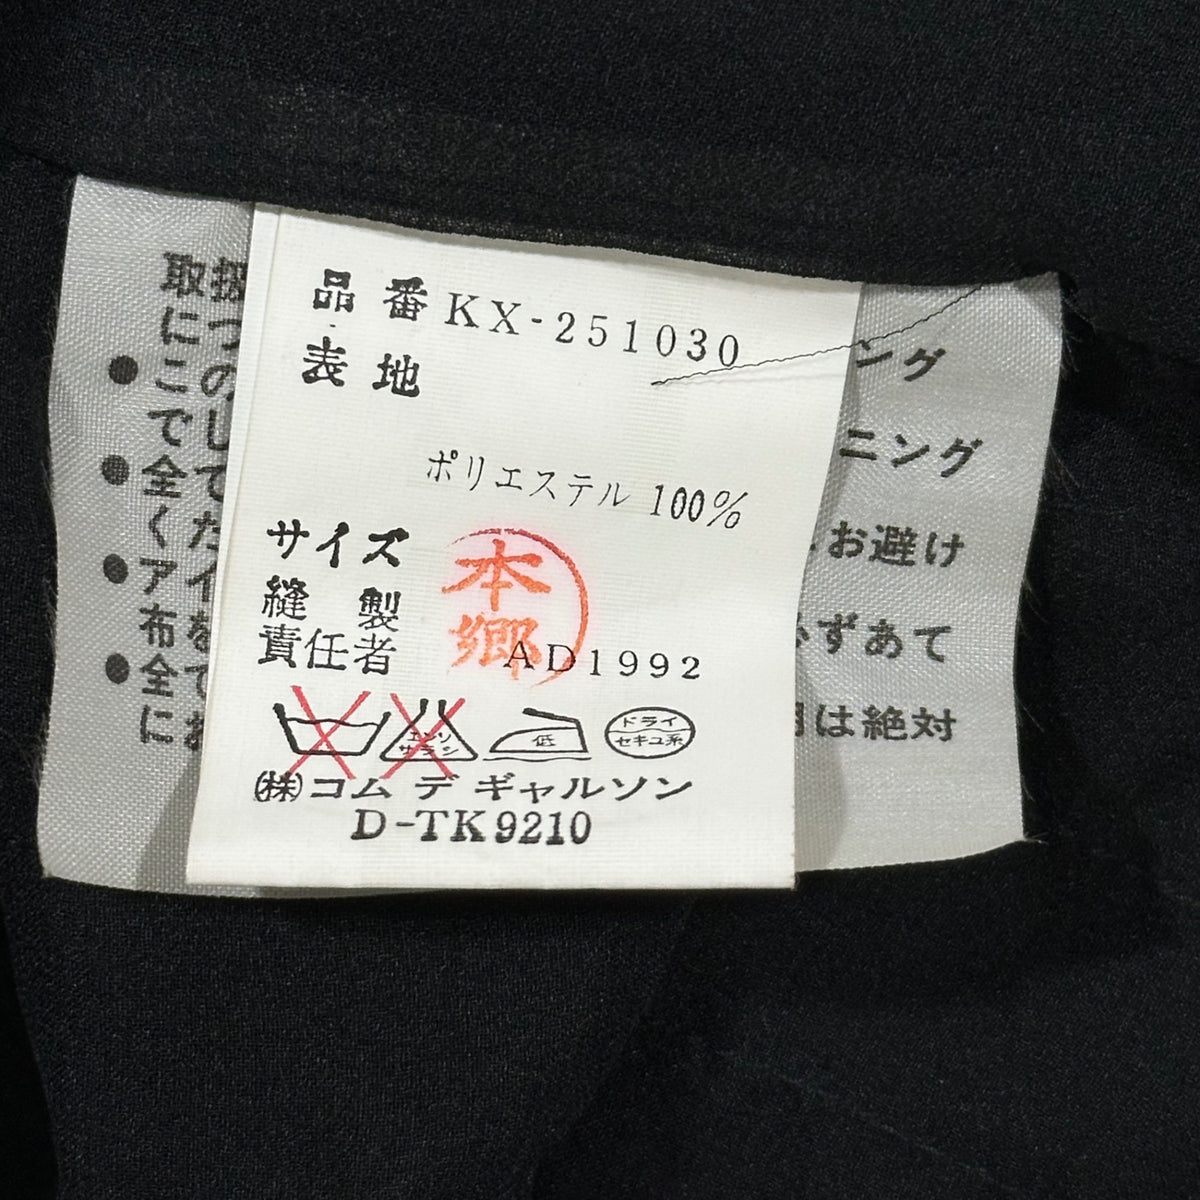 品番 KX-251030
表地
ポリエステル 100%
サイズ
縫製
責任者
本郷
AD1992
エンソ
サラシ
低
ドライ
セキユ系
㈱コム デ ギャルソン
D-TK9210
取扱
につ
●この
でし
●全て
くた
●アイ
布を
●全て
にお
ング
ニング
お避け
ずあて
は絶対